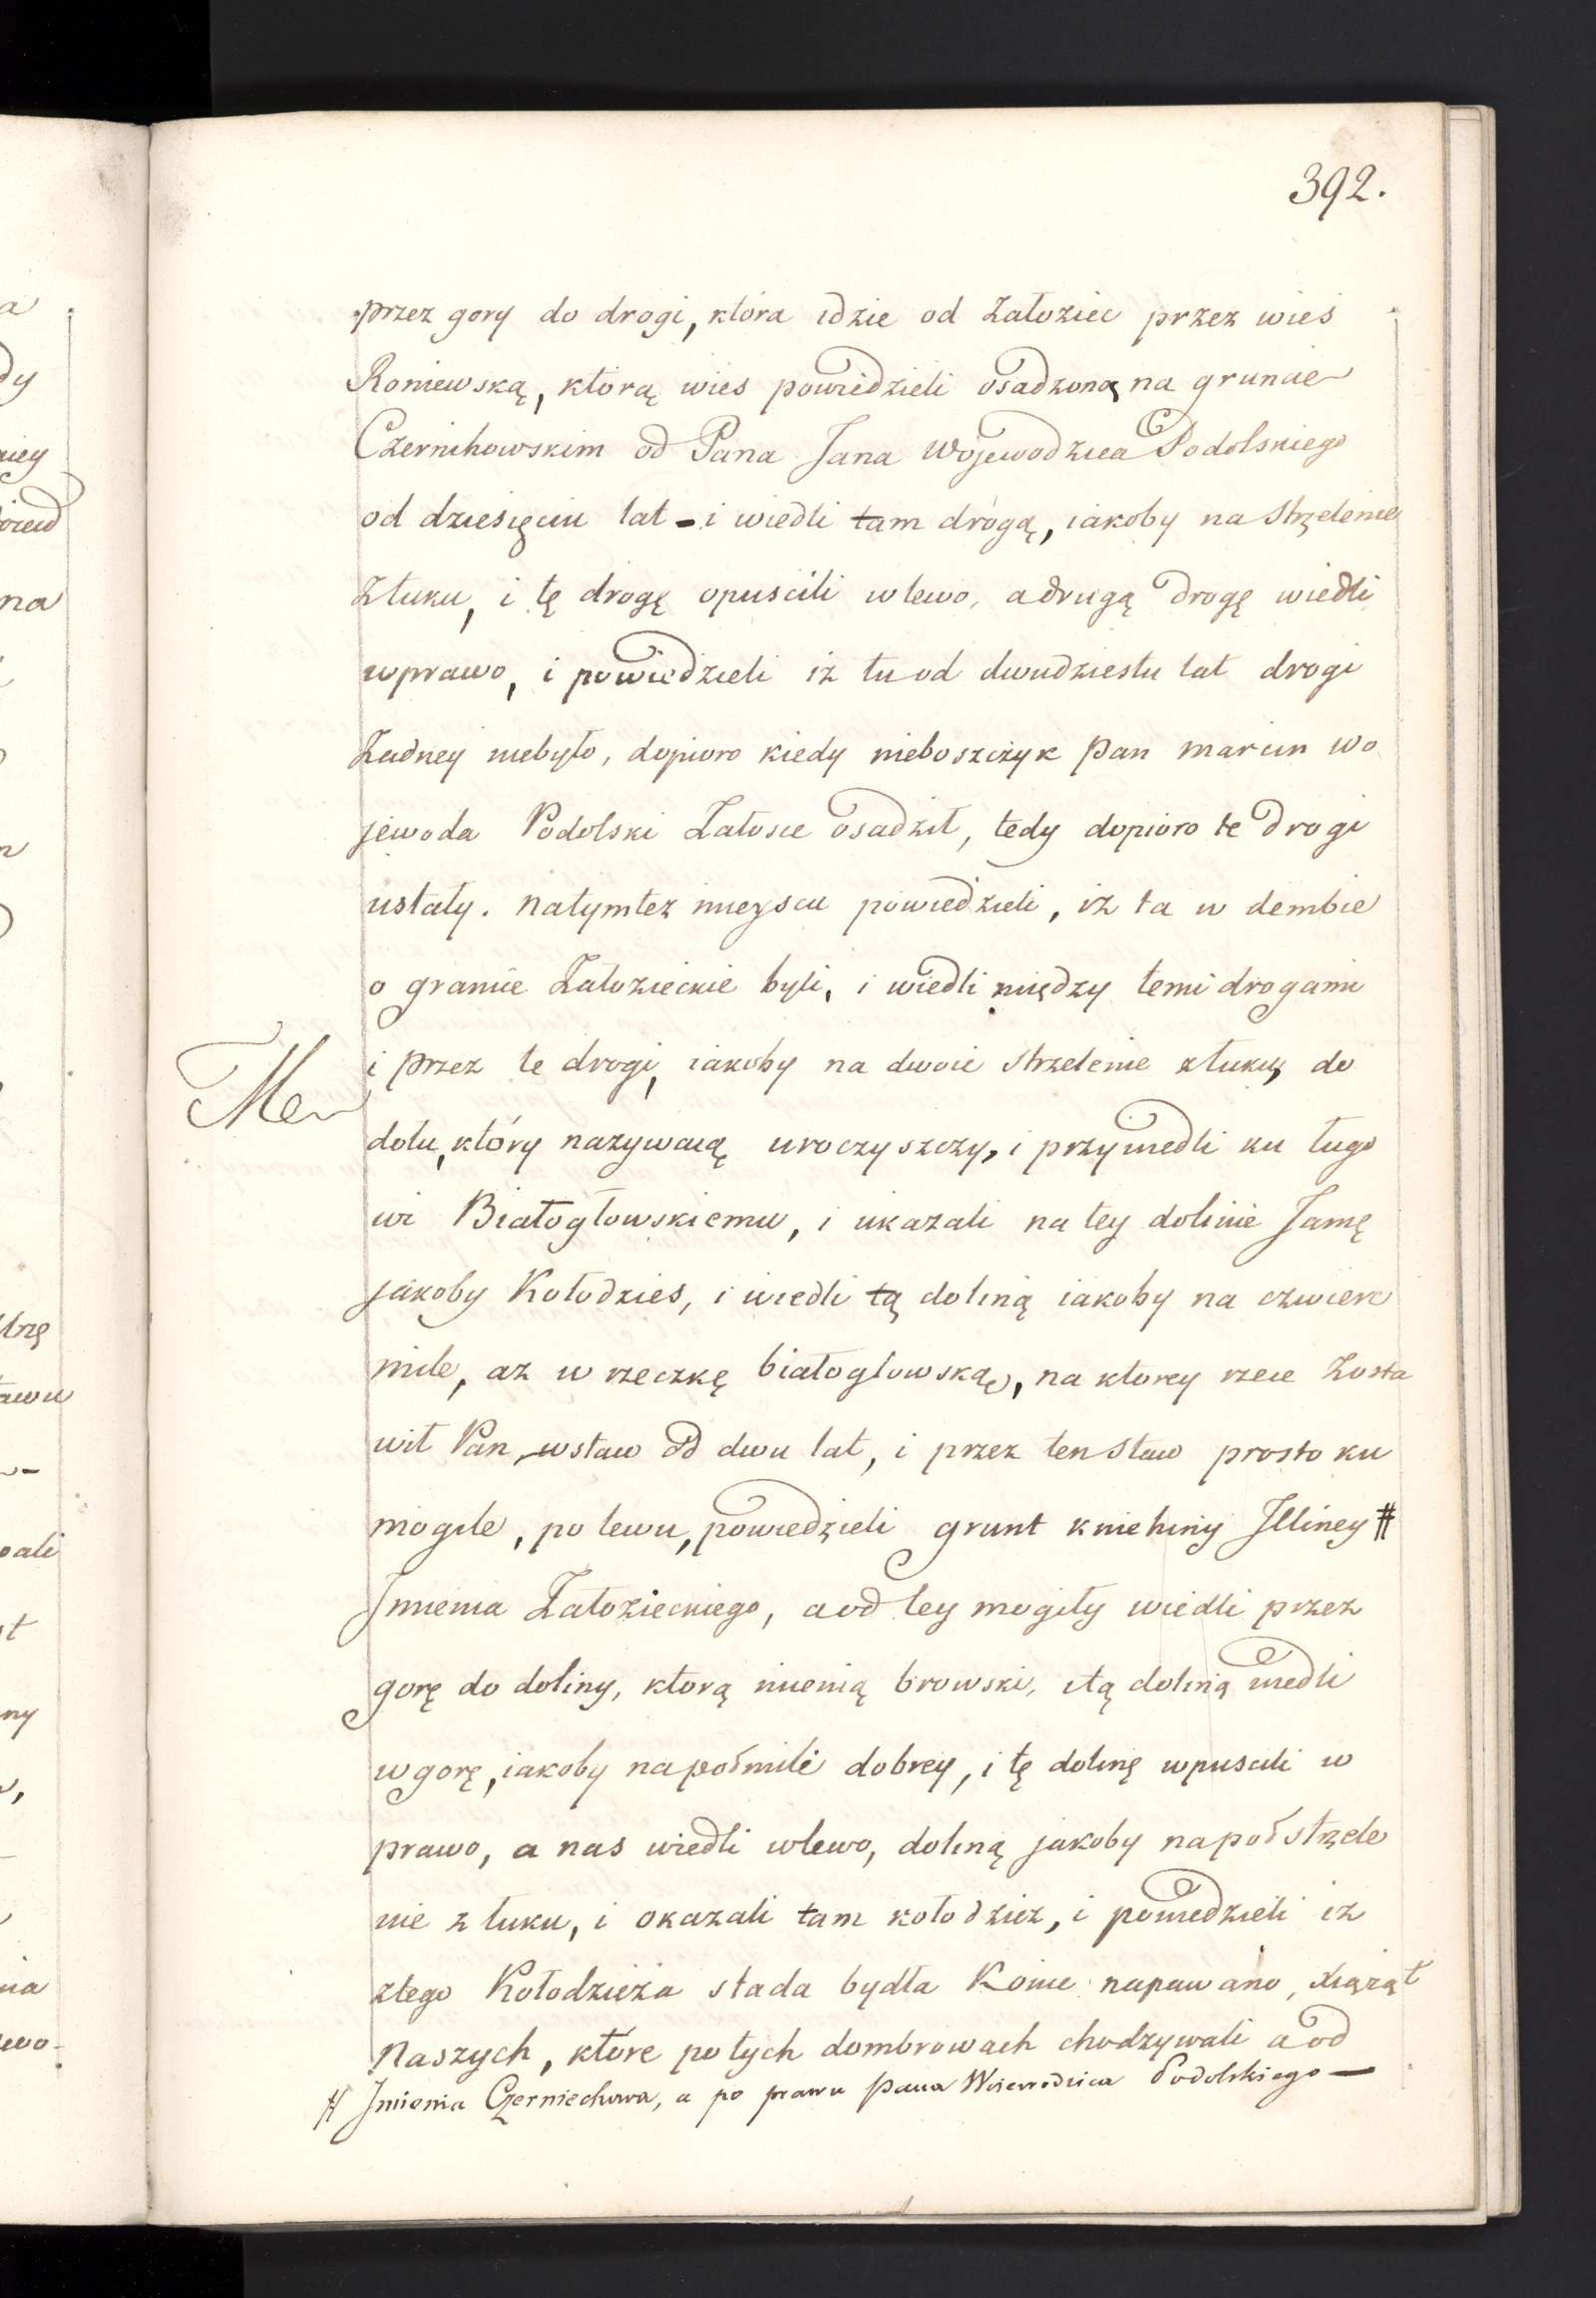 392.
przez gory do drogi, która idzie od Załoziec przez wieś
Roniewską, którą wies powiedzieli osadzoną na gruncie
Czernihowskim od Pana Jana Wojewodzica Podolskiego
od dziesięciu lat - i wiedli tam drogą, iakoby na strzelenie
Złuku, i tę drogę opuscili wlewo, a drugą drogę wiedli
wprawo, i powiedzieli iż tu od dwudziestu lat drogi
Żadney niebyło, dopioro kiedy nieboszczyk Pan marcin wo
jewoda Podolski Załosce osadził, tedy dopioro te drogi
ustały. natymtez mieyscu powiedzieli, iż ta w dembie
o granice Załozieckie byli, i wiedli między temi drogami
i przez te drogi, iakoby na dwoie strzelenie złuku, do
dołu, który nazywaią uroczyszczy, i przywiedli ku ługo
wi Białogłowskiemu, i ukazali na tey dolinie Jamę
jakoby Kołodzies, i wiedli tą doliną iakoby na czwierc
mile, az w rzeczkę białogłowską, na ktorey rzece Zosta
wił Pan wstaw od dwu lat, i przez ten staw prosto ku
mogile, po lewu, powiedzieli grunt kniehiny Illiney #
Jmienia Załozieckiego, a od tey mogiły wiedli przez
gorę do doliny, ktorą mienią browski, itą doliną wiedli
wgorę, iakoby napołmili dobrey, i tę dolinę wpuscili w
prawo, a nas wiedli wlewo, doliną jakoby napoł strzele
nie z łuku, i okazali tam kołodziez, i powiedzieli iz
ztego Kołodzieża stada bydła Konie napawano, xiążąt
Naszych, które potych dombrowach chodzywali a od
# Jmienia Czerniechowa, a po prawu Pana Woiewodzica Podolskiego —